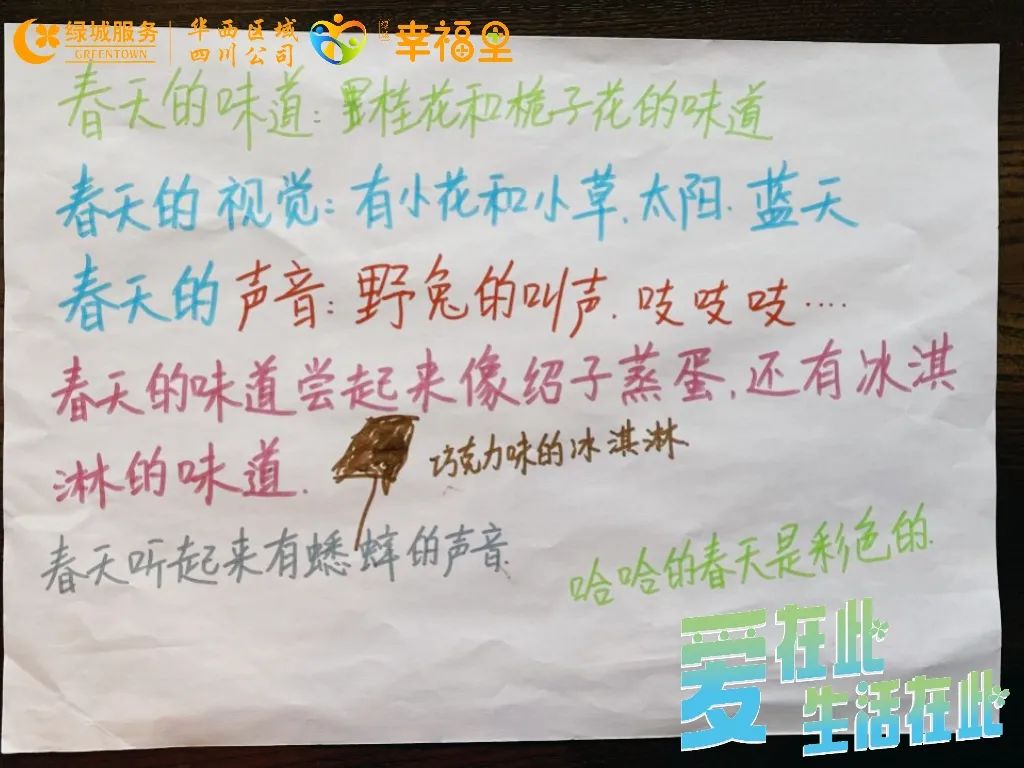 绿城服务
GREENTOWN
华西区域
四川公司
幸福里
春天的味道:桂花和栀子花的味道
春天的视觉:有小花和小草.太阳.蓝天
春天的声音:野兔的叫声.吱吱吱....
春天的味道尝起来像绍子蒸蛋,还有冰淇
淋的味道.
巧克力味的冰淇淋.
春天听起来有蟋蟀的声音.
哈哈的春天是彩色的.
爱在此
生活在此